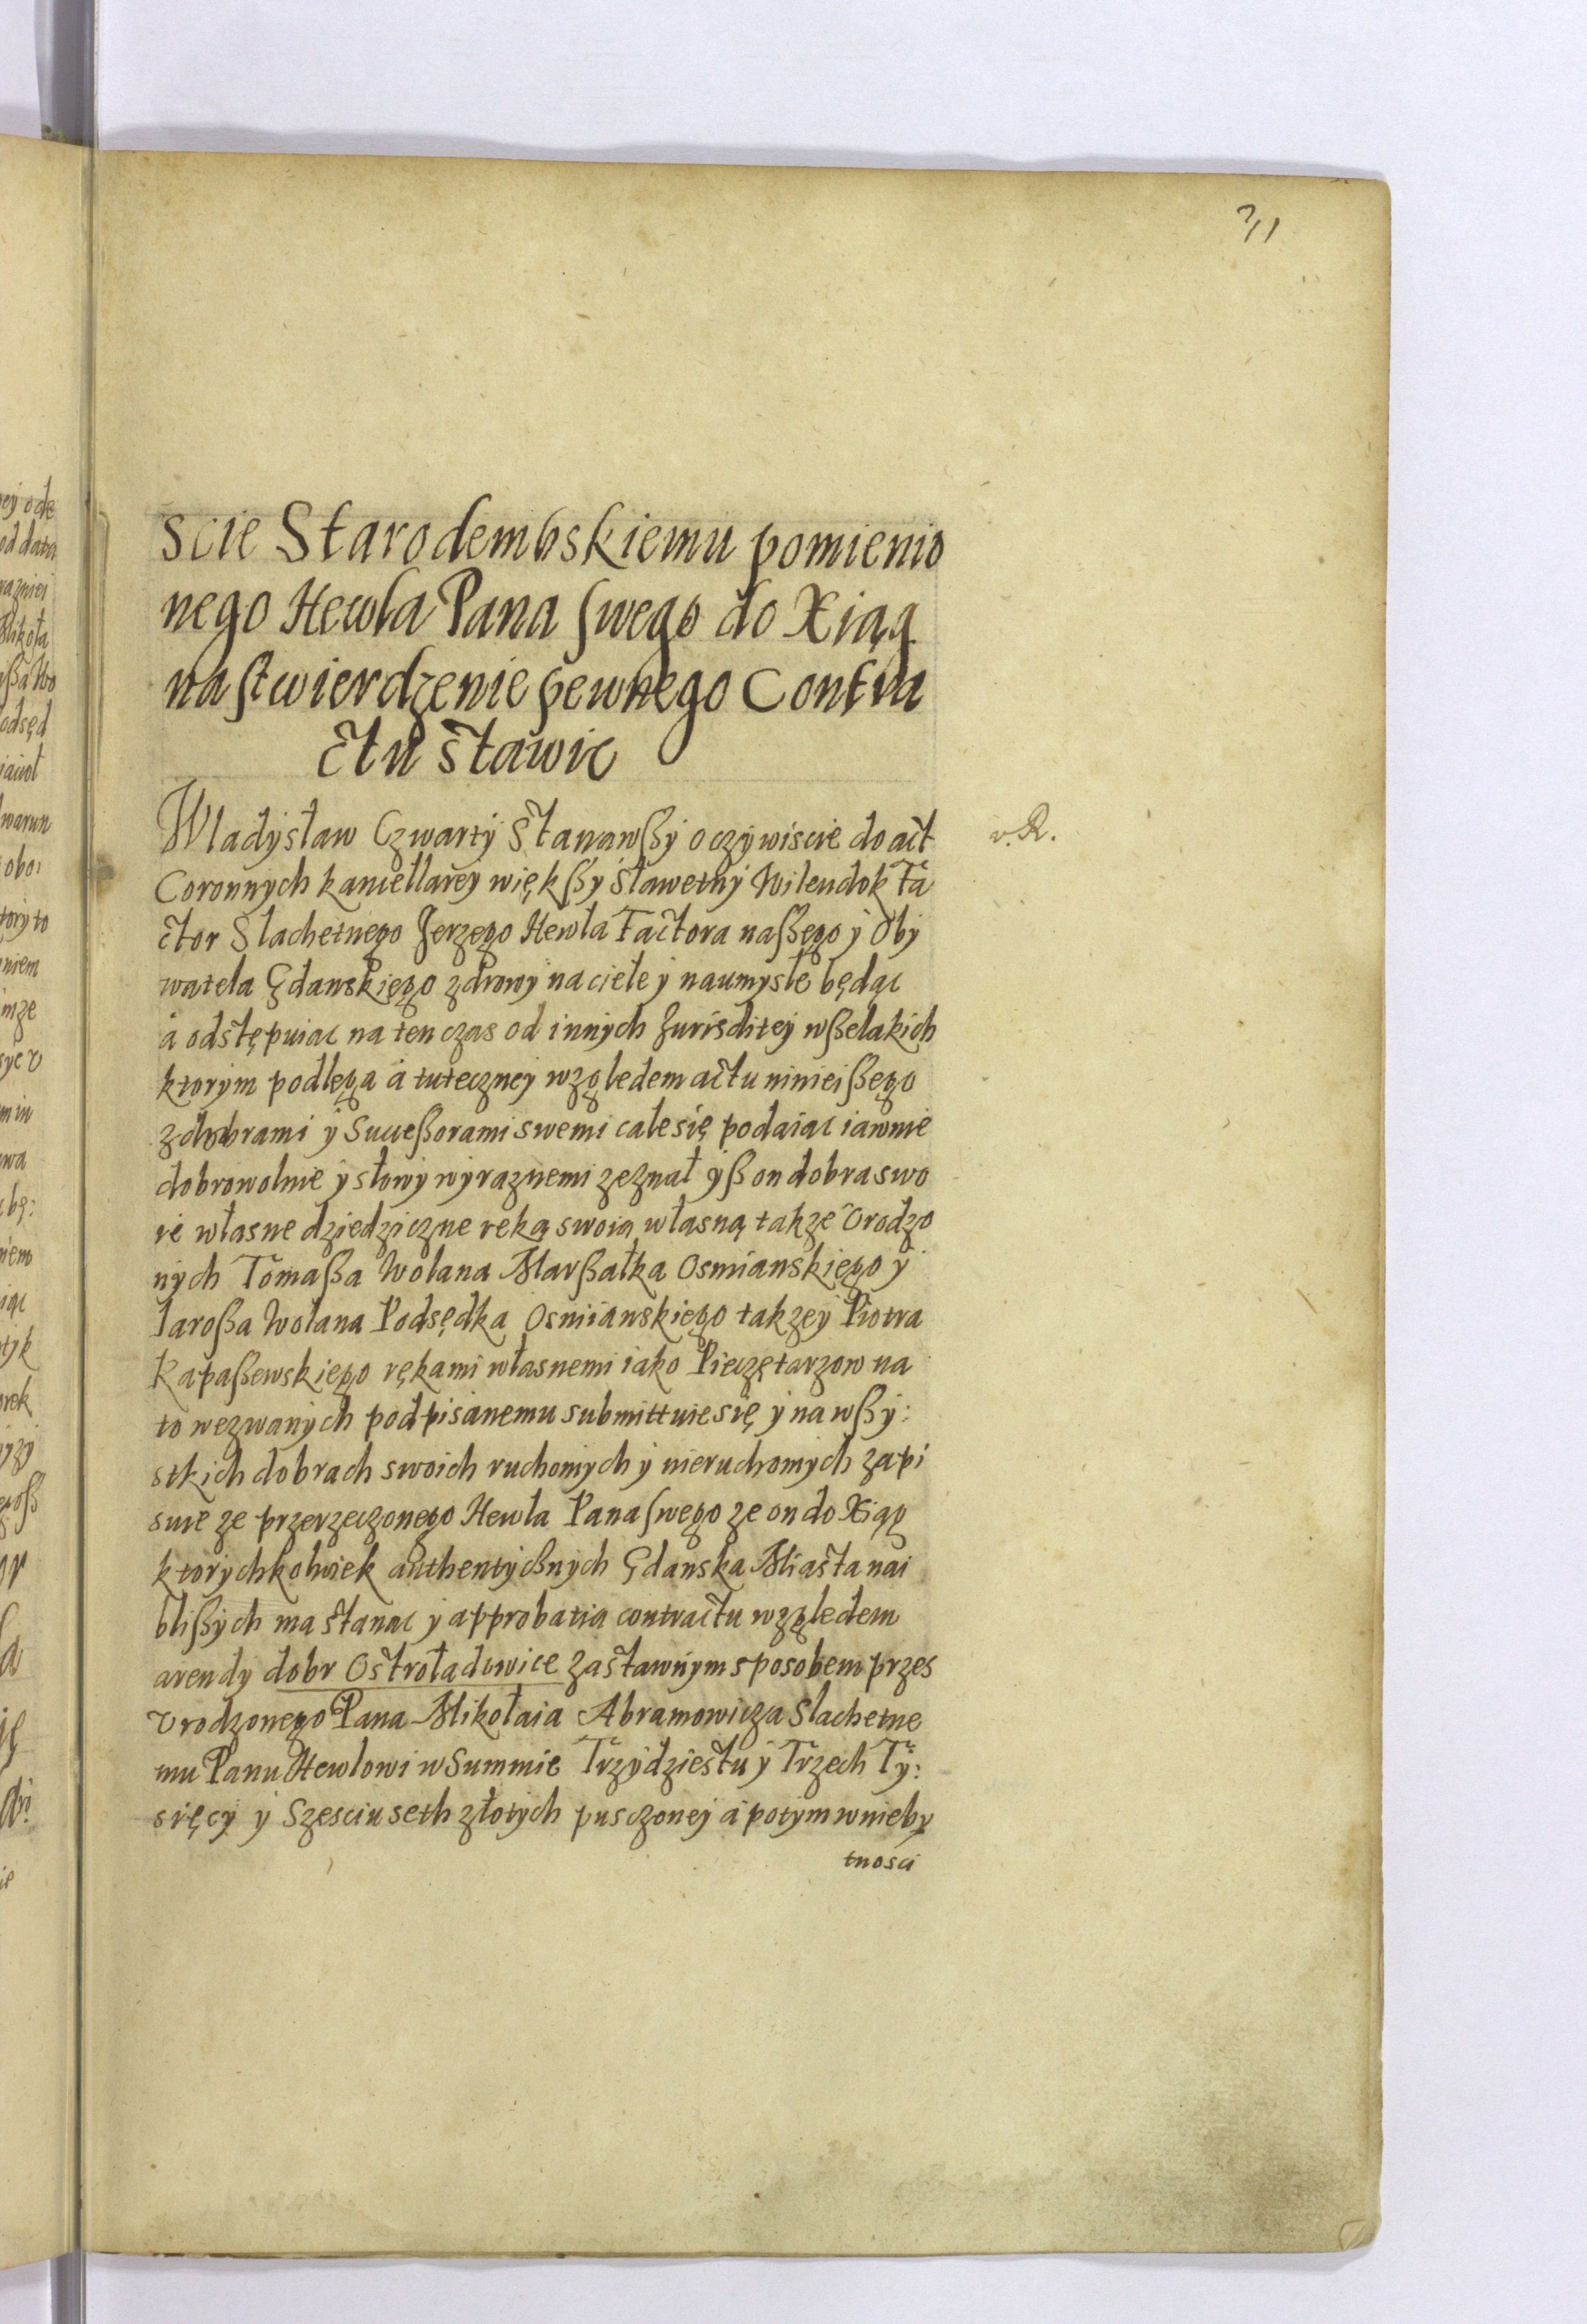 31
scie Starodembskiemu pomienio
nego Hewla Pana swego do Xiąg
na stwierdzenie pewnego Contra
ctu stawic
Wladysław Czwarty Stanawßy oczywiscie do act
v. R.
Coronnych kancellarey więkßy Sławetny Wilendok Fa
ctor Slachetnego Jerzego Hewla Factora naßego y Oby
watela Gdanskiego zdrowy na ciele y naumysle będąc
á odstępuiac na ten czas od innych Jurisditey wßelakich
ktorym podlega á tuteczney względem actu ninieißego
z dobrami y Succeßorami swemi cale się podaiac iawnie
dobrowolnie y słowy wyraznemi zeznał yß on dobra swo
ie własne dziedziczne reką swoią własną takze Vrodzo
nych Tomaßa Wolana Marßałka Osmianskiego y
Jaroßa Wolana Podsędka Osmianskiego takzey Piotra
Kapaßewskiego rękami własnemi iako Pieczętarzow na
to wezwanych podpisanemu submittuie się y na wßy:
stkich dobrach swoich ruchomych y nieruchomych zapi
suie ze przerzeczonego Hewla Pana swego ze on do Xiąg
ktorychkolwiek authentycßnych Gdanska Miasta nai
blißych ma stanac y approbatia contractu względem
arendy dobr Ostroładowice zastawnym sposobem przes
Vrodzonego Pana Mikołaia Abramowicza Slachetne
mu Panu Hewlowi w Summie Trzydziestu y Trzech Ty:
sięcy y Szesciu seth złotych pusczoney á potym w nieby
tnosci